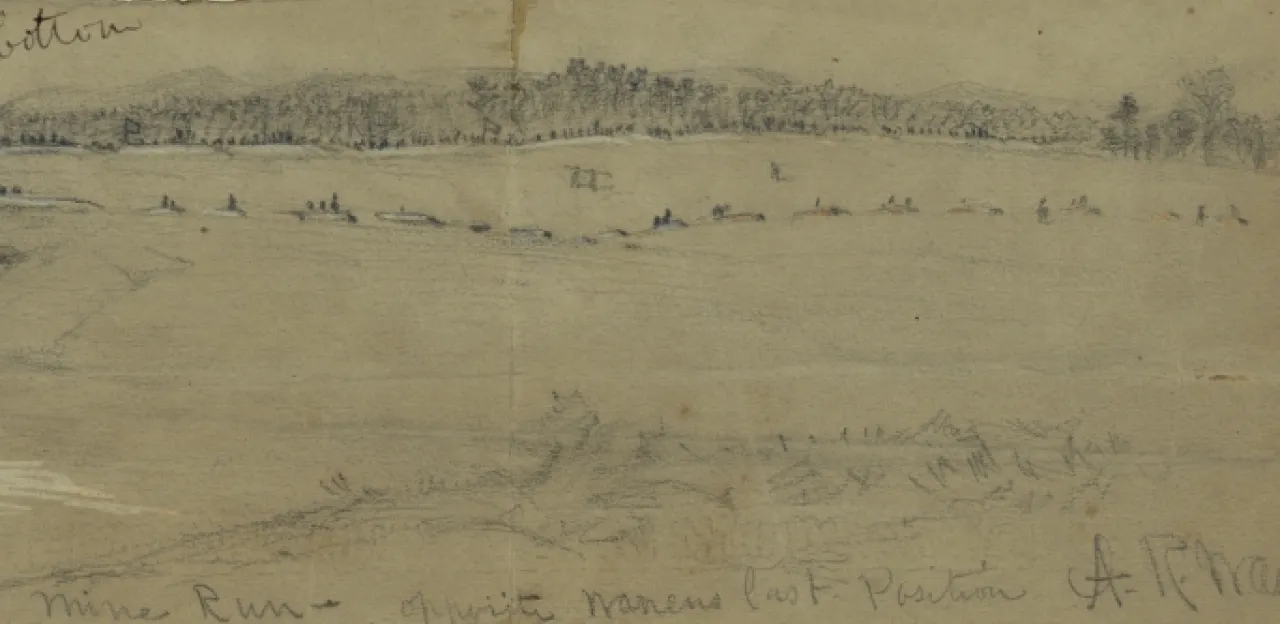 bottom
Mine Run - opposite Warrens last Position A. R. Wa